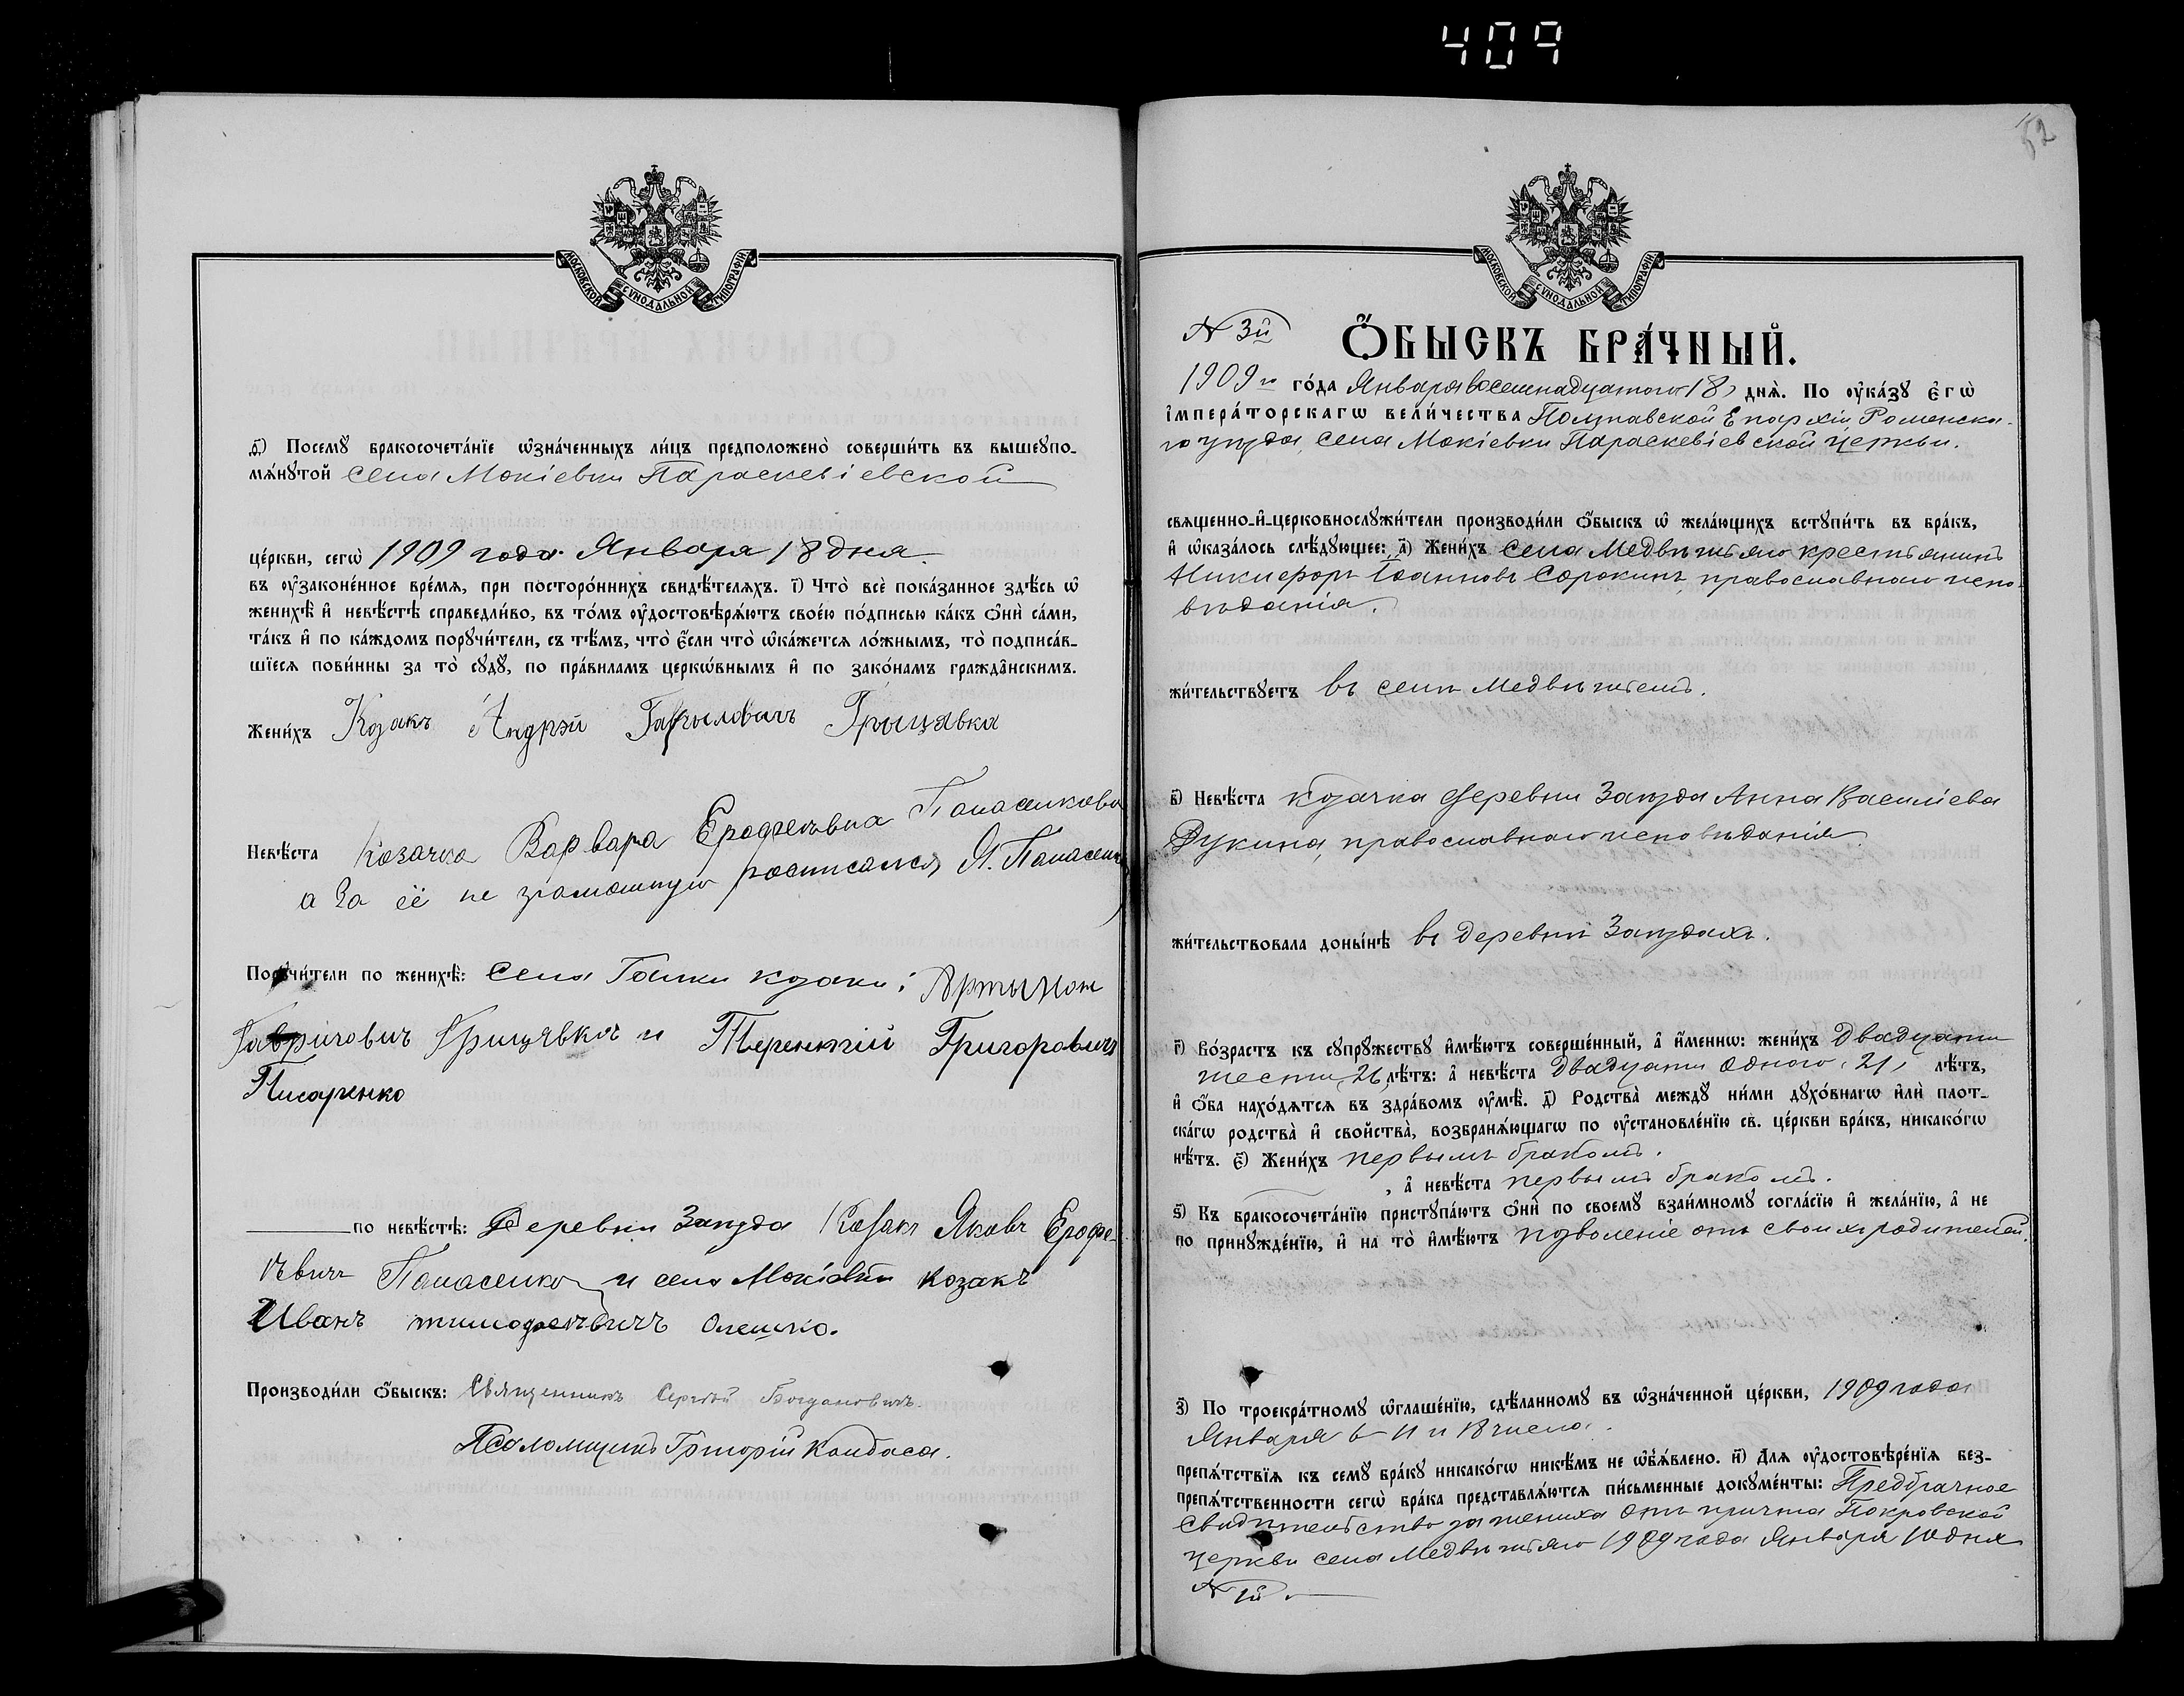 409
52
МОСКОВСКОЙ СУНОДАЛЬНОЙ ТИПОГРАФІИ
Ѳ҃) Посемꙋ бракосочета́нїе ѡ҆зна́ченныхъ ли́цъ предположено̀ соверши́ть въ вышеꙋпо-
мѧ́нꙋтой села Мокіевки Параскевіевской
це́ркви, сегѡ̀ 1909 года Января 18 дня
въ ᲂу҆законе́нное вре́мѧ, при посторо́ннихъ свидѣ́телѧхъ. і҃) Что̀ всѐ пока́занное здѣ́сь ѡ҆
женихѣ̀ и҆ невѣ́стѣ справедли́во, въ то́мъ ᲂу҆достовѣрѧ́ютъ свое́ю по́дписью ка́къ ѻ҆нѝ са́ми,
та́къ и҆ по ка́ждомъ порꙋчи́тели, съ тѣ́мъ, что̀ є҆́сли что̀ ѡ҆ка́жетсѧ ло́жнымъ, то̀ подписа́в-
шїесѧ пови́нны за то̀ сꙋдꙋ̀, по пра́виламъ церкѡ́внымъ и҆ по зако́намъ гражда̑нскимъ.
Жени́хъ Козакъ Андрэй Гаврыловичъ Грыцявка
Невѣ́ста Козачка Варвара Ерофеѣвна Панасенкова
а За её не грамотную росписался Я. Панасен
Порꙋчи́тели по женихѣ̀: Села Галки козаки: Артымон
Гаврилович Грицявка и Терентій Григоровичъ
Писаренко
по невѣ́стѣ: Деревни Загуда Козакъ Яковъ Ерофе-
ѣвичъ Панасенко и села Мокіевки козакъ
Иванъ тимофеѣвичъ Олешко.
Производи́ли ѻ҆́быскъ: Священникъ Сергѣй Богдановичъ
Псаломщикъ Григорій Канбаса.
МОСКОВСКОЙ СУНОДАЛЬНОЙ ТИПОГРАФІИ
№ 3й
Ѻ҆́БЫСКЪ БРА́ЧНЫЙ.
1909го го́да Января восемнадцатого 18 днѧ̀. По ᲂу҆ка́зꙋ є҆гѡ̀
і҆мпера́торскагѡ вели́чества Полтавской Епархіи Роменска-
го уѣзда, села Мокіевки Параскевіевской церкви.
свѧщенно-и҆-церковнослꙋжи́тели производи́ли ѻ҆́быскъ ѡ҆ жела́ющихъ встꙋпи́ть въ бра́къ,
и҆ ѡ҆каза́лось слѣ́дꙋющее: а҃) Жени́хъ села Медвѣжьяго крестьянинъ
Никифоръ Іоанновъ Сорокинъ, православнаго испо-
вѣданія.
жи́тельствꙋетъ въ селѣ Медвѣжьемъ.
в҃) Невѣ́ста козачка деревни Загуда Анна Василіева
Дукина, православнаго исповѣданія
жи́тельствовала доны́нѣ въ деревнѣ Загудахъ.
г҃) Во́зрастъ къ сꙋпрꙋ́жествꙋ и҆мѣ́ютъ соверше́нный, а҆ и҆́меннѡ: жени́хъ двадцати
шести, 26, лѣ́тъ: а҆ невѣ́ста двадцати одного, 21, лѣ́тъ,
и҆ ѻ҆́ба нахо́дѧтсѧ въ здра́вомъ ᲂу҆мѣ̀. д҃) Родства̀ междꙋ̀ ни́ми дꙋхо́внагѡ и҆лѝ плот-
ска́гѡ родства̀ и҆ сво́йства̀, возбранѧ́ющагѡ по ᲂу҆становле́нїю св. це́ркви бра́къ, никако́гѡ
нѣ́тъ. є҃) Жени́хъ первымъ бракомъ.
, а҆ невѣ́ста первымъ бракомъ.
ѕ҃) Къ бракосочета́нїю пристꙋпа́ютъ ѻ҆нѝ по своемꙋ̀ взаи́мномꙋ согла́сїю и҆ жела́нїю, а҆ не
по принꙋжде́нїю, и҆ на то̀ и҆мѣ́ютъ позволеніе отъ своихъ родителей.
з҃) По троекра́тномꙋ ѡ҆глаше́нїю, сдѣ́ланномꙋ въ ѡ҆зна́ченной це́ркви, 1909 года
Января 6 11 и 18 числа.
препѧ́тствїѧ къ семꙋ̀ бра́кꙋ никако́гѡ никѣ́мъ не ѡ҆б̾ѧ́влено. и҃) Длѧ̀ ᲂу҆достовѣре́нїѧ без-
препѧ́тственности сегѡ̀ бра́ка представлѧ́ютсѧ пи́сьменные докꙋме́нты: Предбрачное
свидѣтельство за жениха отъ причта Покровской
церкви села Медвѣжьяго 1909 года Января 10 дня
№ 1й